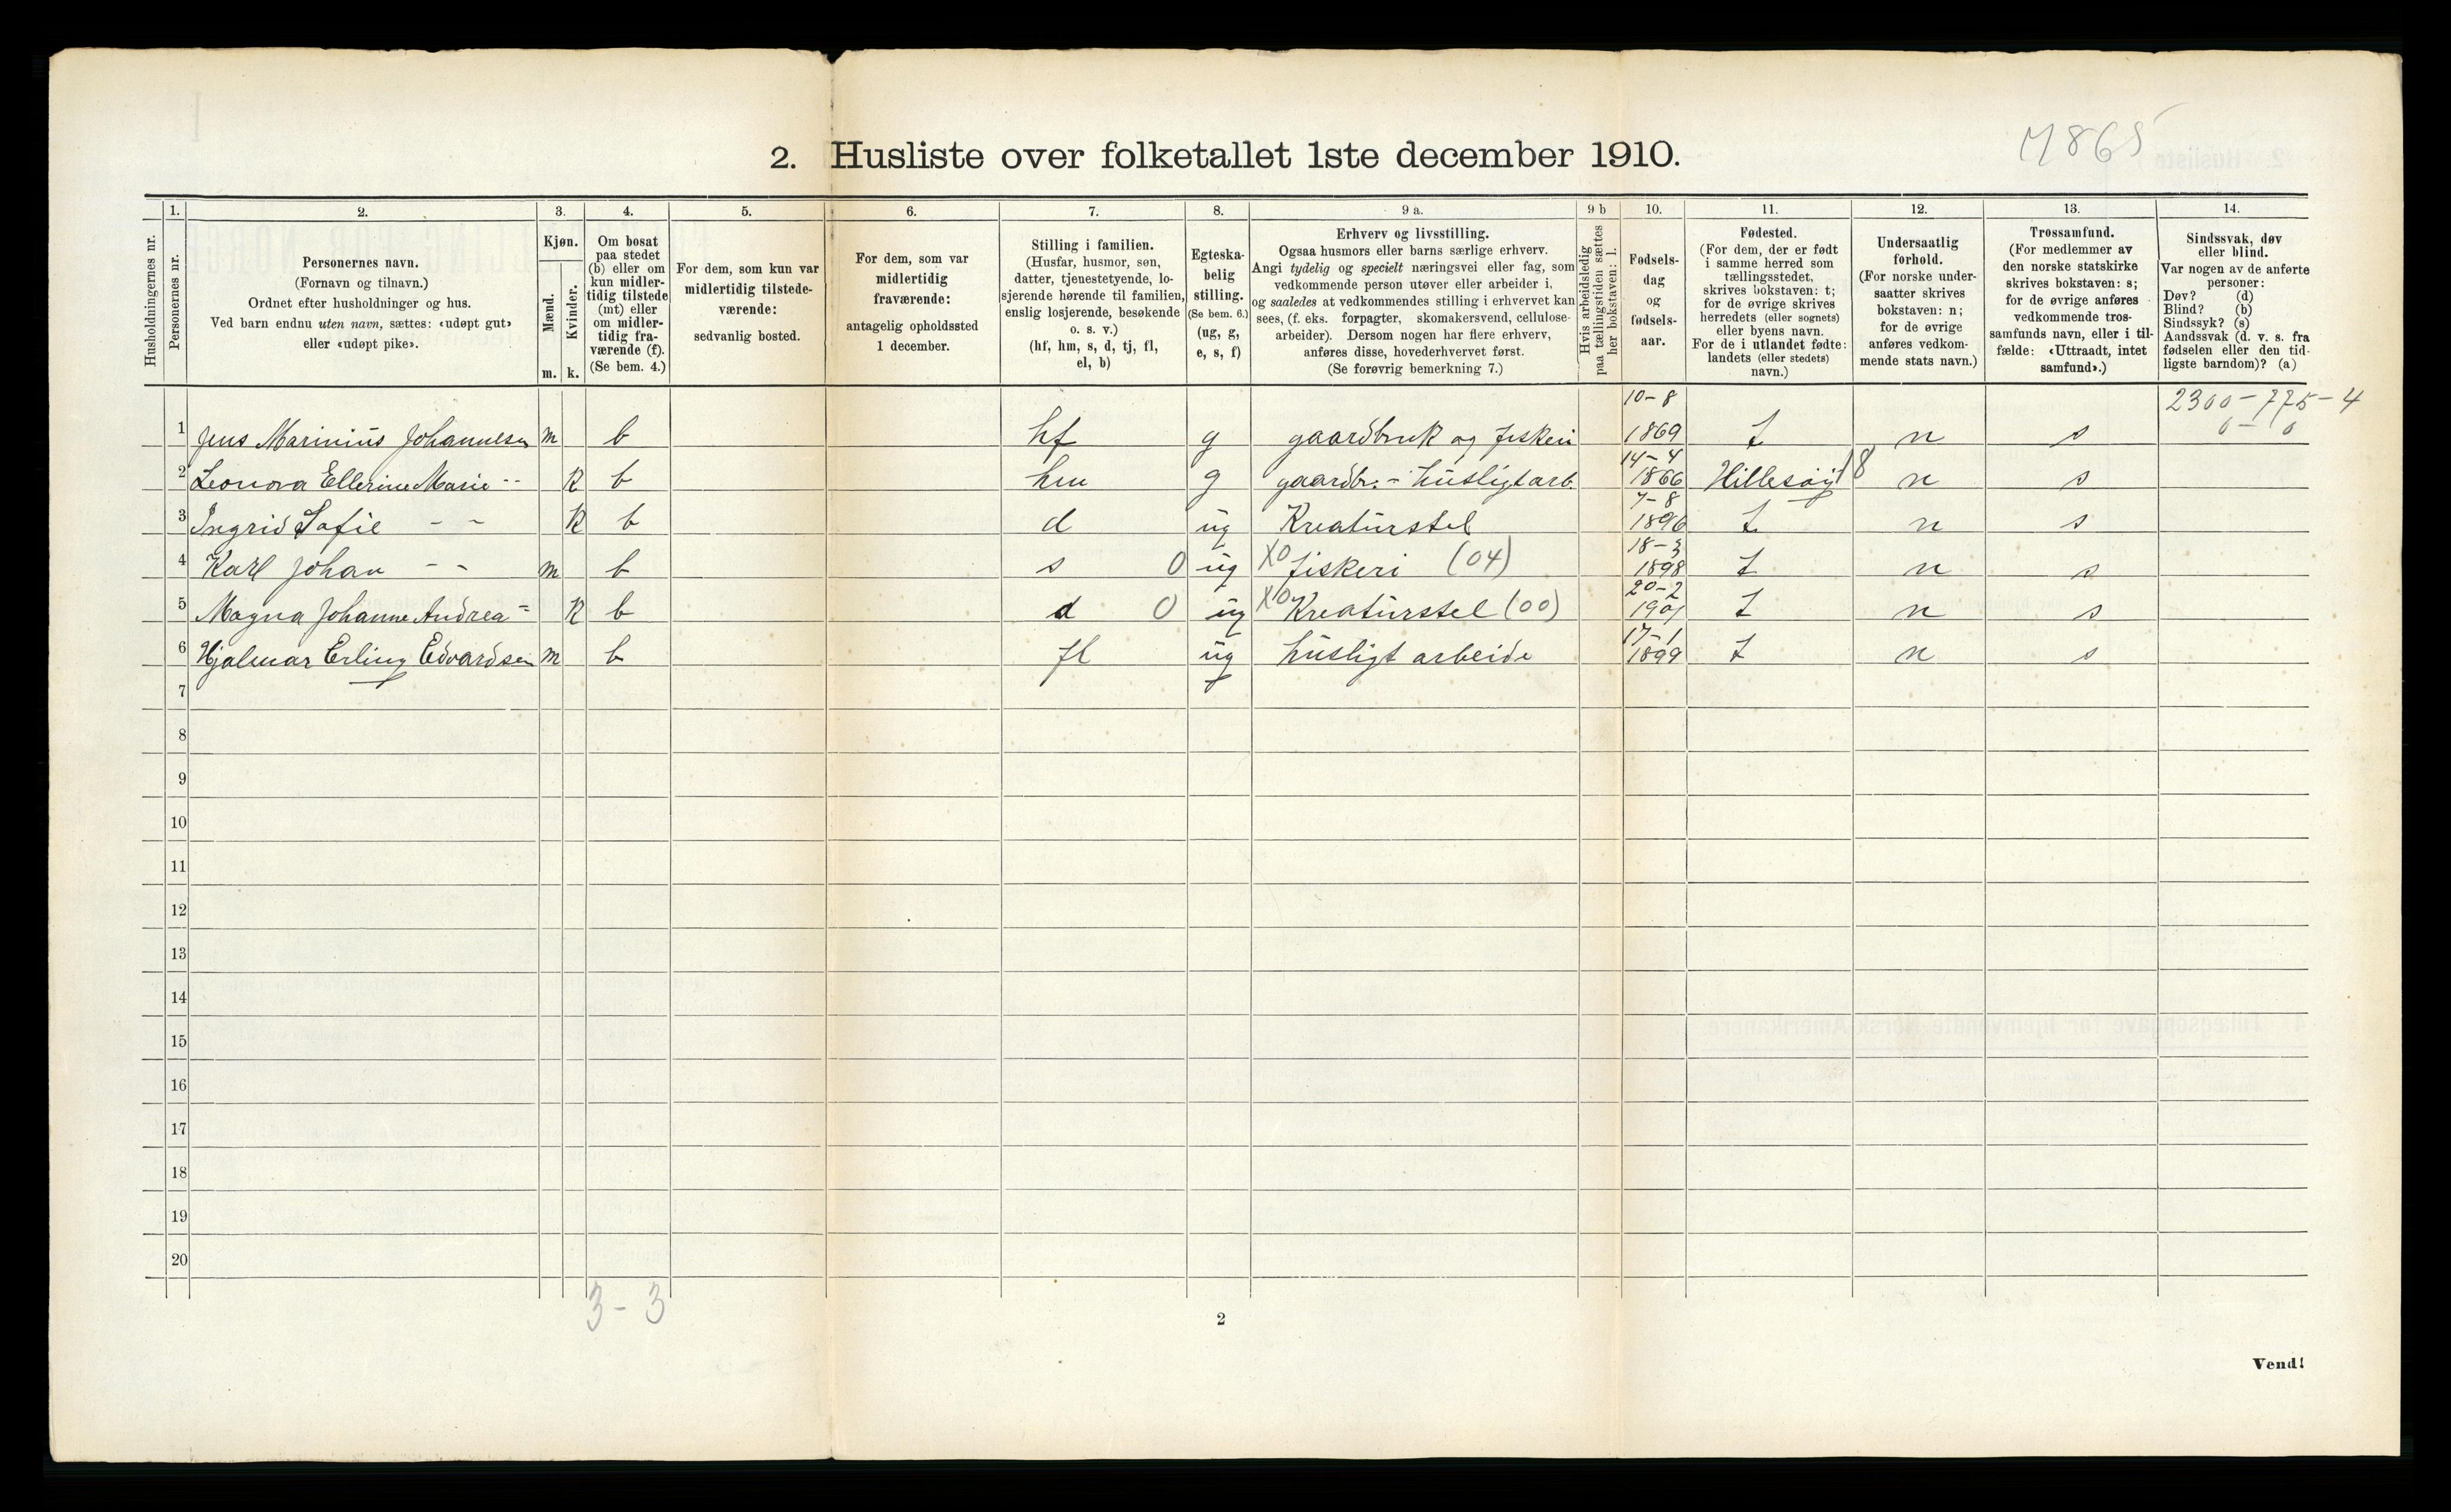 7865
2. Husliste over folketallet 1ste december 1910.
1. 2. 3. 4. 5. 6. 7. 8. 9 a. 9 b 10. 11. 12. 13. 14.
Husholdningernes nr.
Personernes nr.
Personernes navn.
(Fornavn og tilnavn.)
Ordnet efter husholdninger og hus.
Ved barn endnu uten navn, sættes: «udøpt gut»
eller «udøpt pike».
Kjøn.
Mænd.
Kvinder.
m. k.
Om bosat
paa stedet
(b) eller om
kun midler-
tidig tilstede
(mt) eller
om midler-
tidig fra-
værende (f).
(Se bem. 4.)
For dem, som kun var
midlertidig tilstede-
værende:
sedvanlig bosted.
For dem, som var
midlertidig
fraværende:
antagelig opholdssted
1 december.
Stilling i familien.
(Husfar, husmor, søn,
datter, tjenestetyende, lo-
sjerende hørende til familien,
enslig losjerende, besøkende
o. s. v.)
(hf, hm, s, d, tj, fl,
el, b)
Egteska-
belig
stilling.
(Se bem. 6.)
(ug, g,
e, s, f)
Erhverv og livsstilling.
Ogsaa husmors eller barns særlige erhverv.
Angi tydelig og specielt næringsvei eller fag, som
vedkommende person utøver eller arbeider i,
og saaledes at vedkommendes stilling i erhvervet kan
sees, (f. eks. forpagter, skomakersvend, cellulose-
arbeider). Dersom nogen har flere erhverv,
anføres disse, hovederhvervet først.
(Se forøvrig bemerkning 7.)
Hvis arbeidsledig
paa tællingstiden sættes
her bokstaven: l.
Fødsels-
dag
og
fødsels-
aar.
Fødested.
(For dem, der er født
i samme herred som
tællingsstedet,
skrives bokstaven: t;
for de øvrige skrives
herredets (eller sognets)
eller byens navn.
For de i utlandet fødte:
landets (eller stedets)
navn.)
Undersaatlig
forhold.
(For norske under-
saatter skrives
bokstaven: n;
for de øvrige
anføres vedkom-
mende stats navn.)
Trossamfund.
(For medlemmer av
den norske statskirke
skrives bokstaven: s;
for de øvrige anføres
vedkommende tros-
samfunds navn, eller i til-
fælde: «Uttraadt, intet
samfund».)
Sindssvak, døv
eller blind.
Var nogen av de anførte
personer:
Døv? (d)
Blind? (b)
Sindssyk? (s)
Aandssvak (d. v. s. fra
fødselen eller den tid-
ligste barndom)? (a)
10-8 2300-775-4
1 Jens Marinius Johannesen m b hf g gaardbruk og fiskeri 1869 t n s 0 - 0
14-4
2 Leonora Ellerine Marie -- K b hm g gaardbr. - husligt arb. 1866 Hillesøy 18 n s
7-8
3 Ingrid Sofie - - K b d ug Kreaturstel 1896 t n s
18-3
4 Karl Johan - - m b s 0 ug X0 fiskeri (04) 1898 t n s
20-2
5 Magna Johanne Andrea = K b d 0 ug X0 Kreaturstel (00) 1901 t n s
17-1
6 Hjalmar Erling Edvardsen m b fl ug husligt arbeide 1899 t n s
7
8
9
10
11
12
13
14
15
16
17
18
19
20
3 - 3
2
Vend!